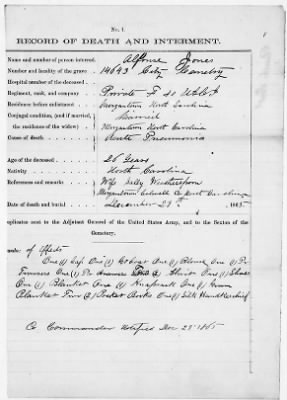 No. 1.
RECORD OF DEATH AND INTERMENT.
Name and number of person interred. Alfonse Jones
Number and locality of the grave 14643 City Cemetery
Hospital number of the deceased
Regiment, rank, and company Private F 40 U.S.C.T.
Residence before enlistment Morgantown North Carolina
Conjugal condition, (and if married, Married
the residence of the widow) Morgantown North Carolina
Cause of death Acute Pneumonia
Age of the deceased 26 Years
Nativity North Carolina
References and remarks Wife Sally
Morgantown Caldwell Co North Carolina
Date of death and burial December 23rd , 1865.
uplicates sent to the Adjutant General of the United States Army, and to the Sexton of the
Cemetery.
of Effects
One (1) Cap One (1) Coat One (1) Blouse One (1) Pr
Trowsers One (1) Pr Drawers Two (2) Shirts One (1) Shoes
One (1) Blanket One (1) Knapsack One (1) Woven
Blanket Two (2) Pocket Books One (1) Silk Handkerchief
Co Commander Notified Dec 23rd 1865